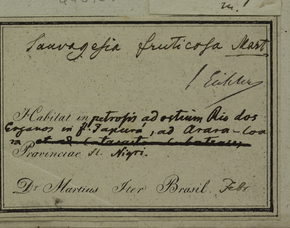 Sauvagesia fruticosa Mart
Eichler
Habitat in petrosis ad ostium Rio dos
Enganos in fl. Japurá, ad Arara-Coa-
ra
Provinciae R. Nigri.
Dr. Martius Iter Brasil. Febr.